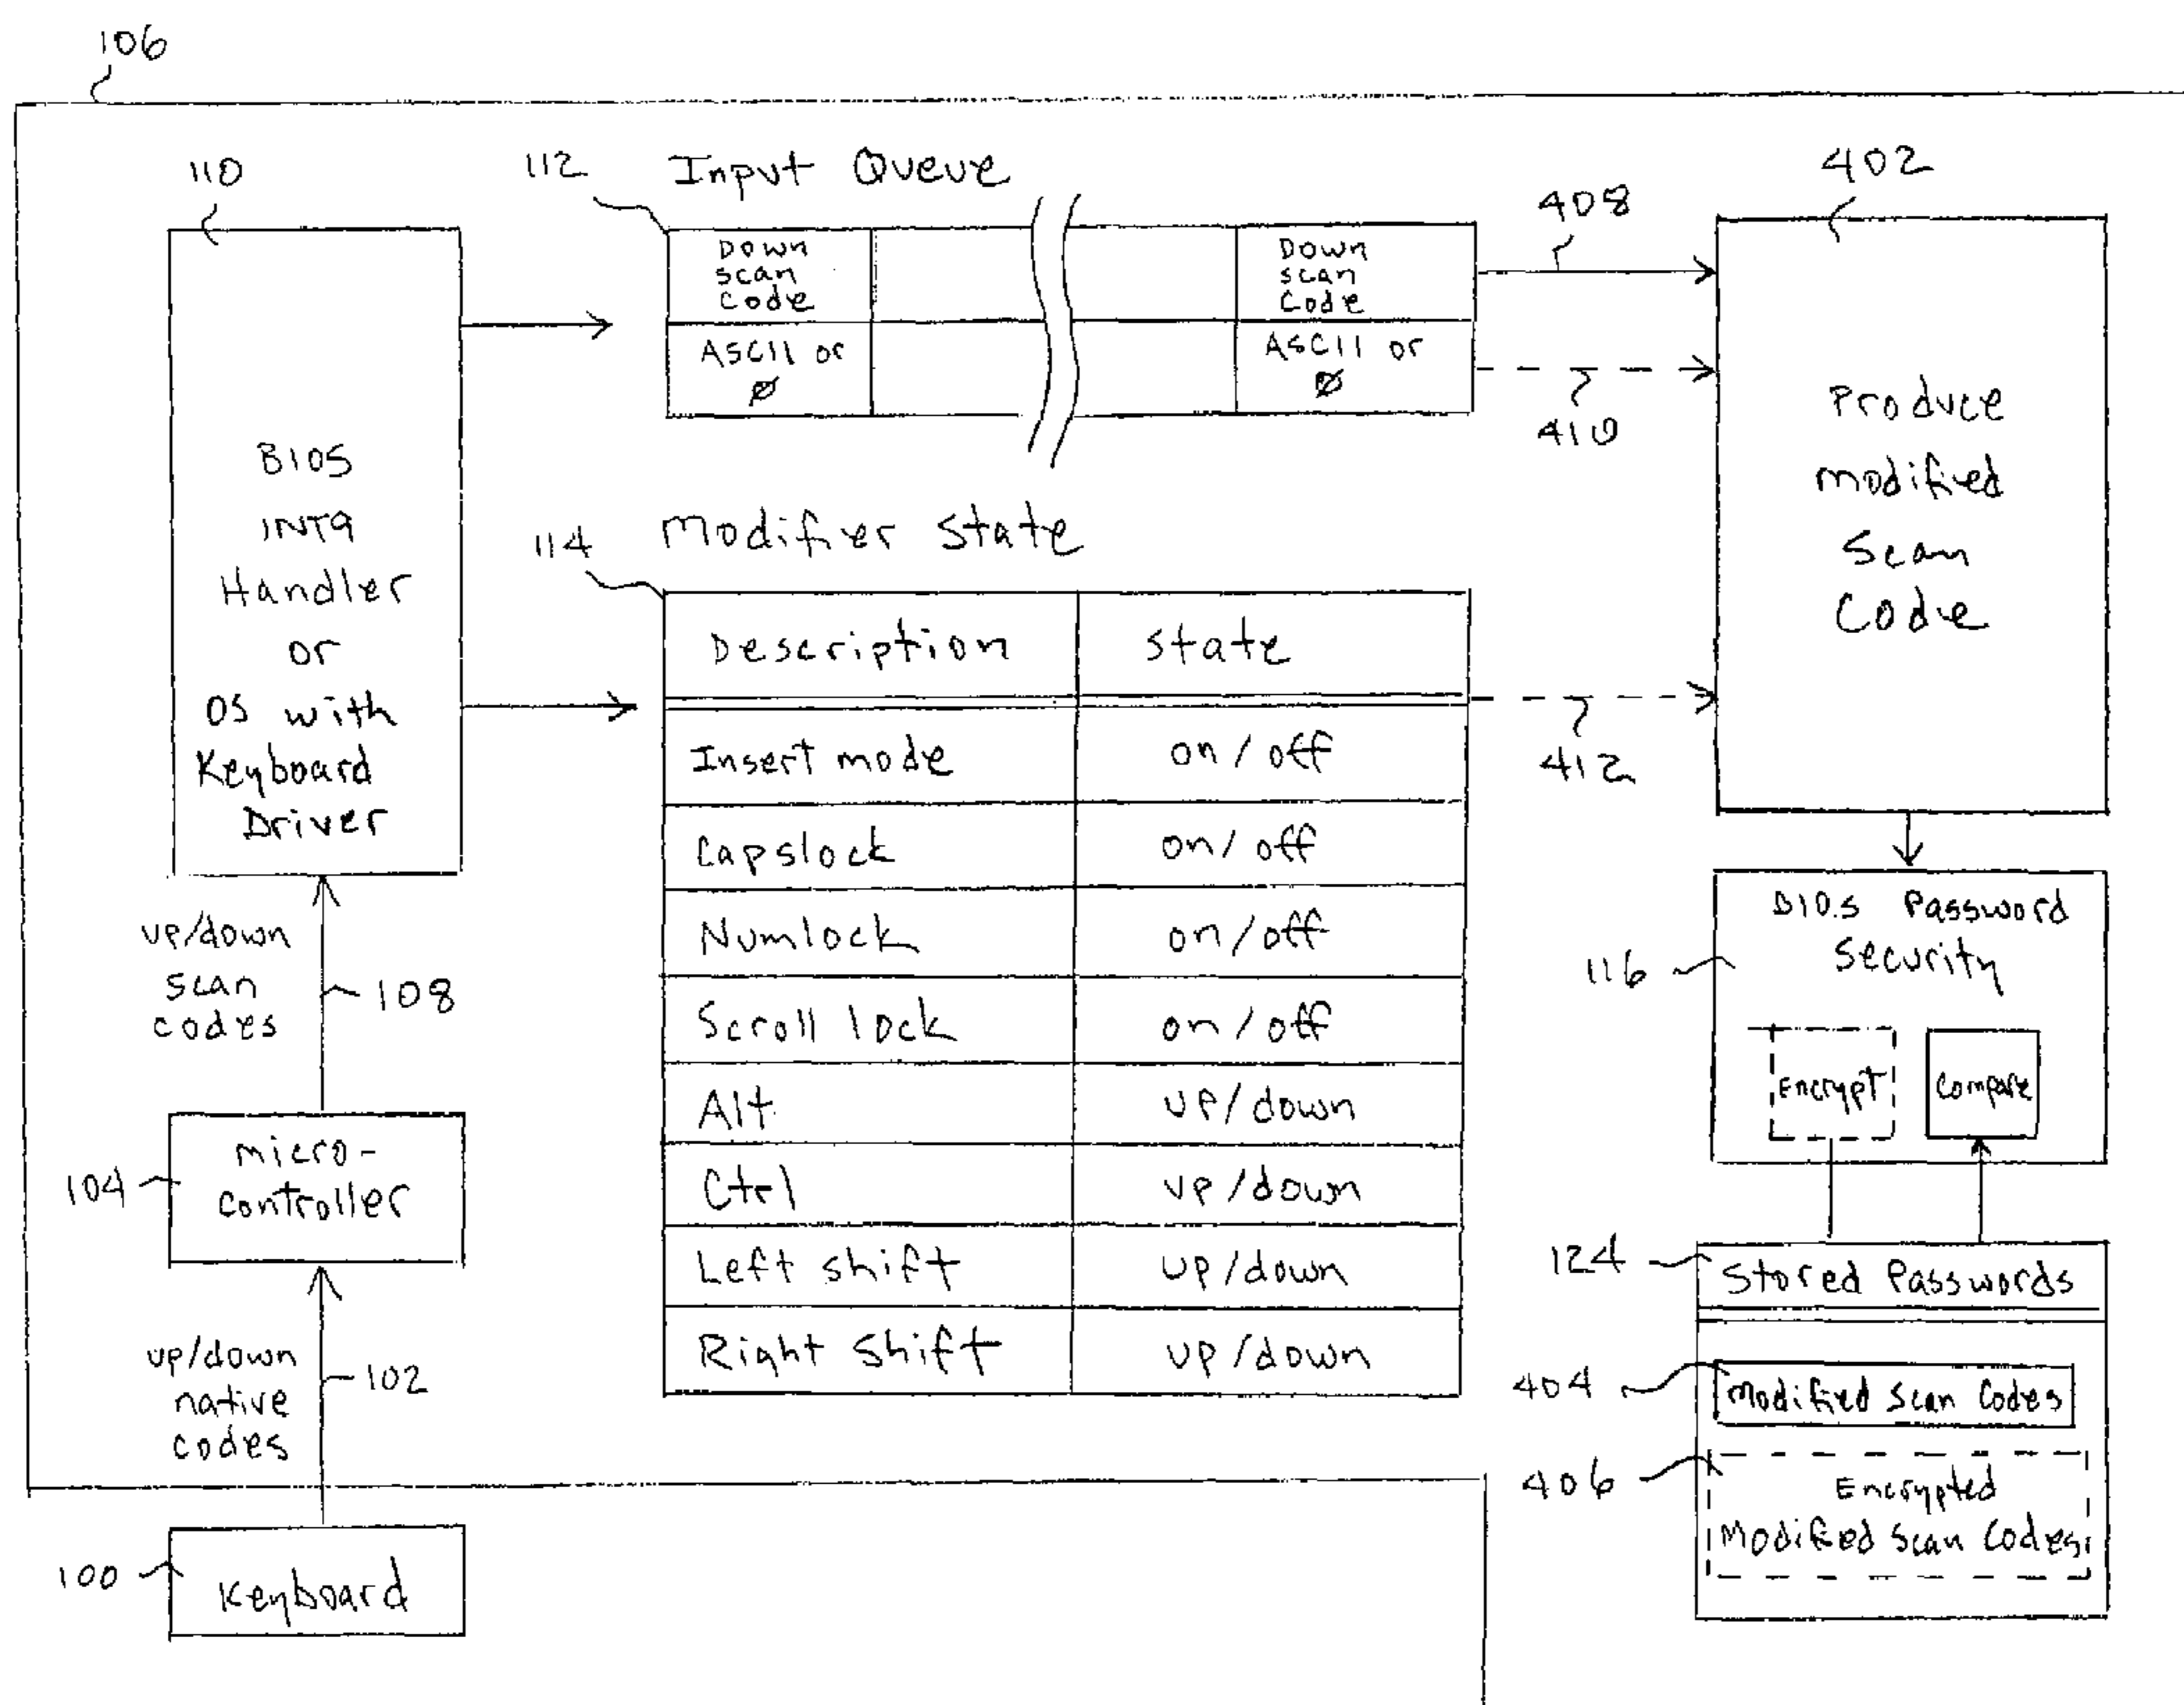 106
110
BIOS
INT9
Handler
or
OS with
Keyboard
Driver
up/down
scan
codes
108
104
micro-
controller
up/down
native
codes
102
100
Keyboard
112
Input Queue
Down
scan
Code
Down
scan
Code
ASCII or
Ø
ASCII or
Ø
114
Modifier State
Description State
Insert mode on/off
Capslock on/off
Numlock on/off
Scroll lock on/off
Alt up/down
Ctrl up/down
Left shift up/down
Right shift up/down
408
410
412
402
Produce
modified
Scan
Code
116
BIOS Password
Security
Encrypt
Compare
124
Stored Passwords
404
Modified Scan Codes
406
Encrypted
Modified Scan Codes